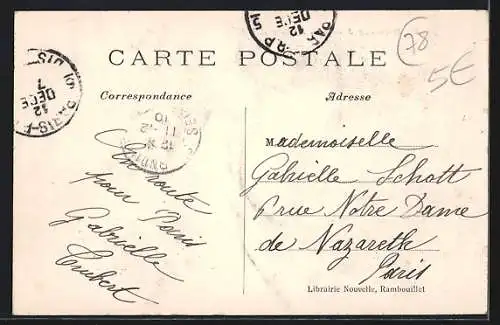 CARTE POSTALE
78
5€
Correspondance
Adresse
En route
pour Paris
Gabrielle
Mademoiselle
Gabielle Schott
6 rue Notre Dame
de Nazareth
Paris
Librairie Nouvelle, Rambouillet
12
DECE
PARIS
12
DECE
7
11-12
10